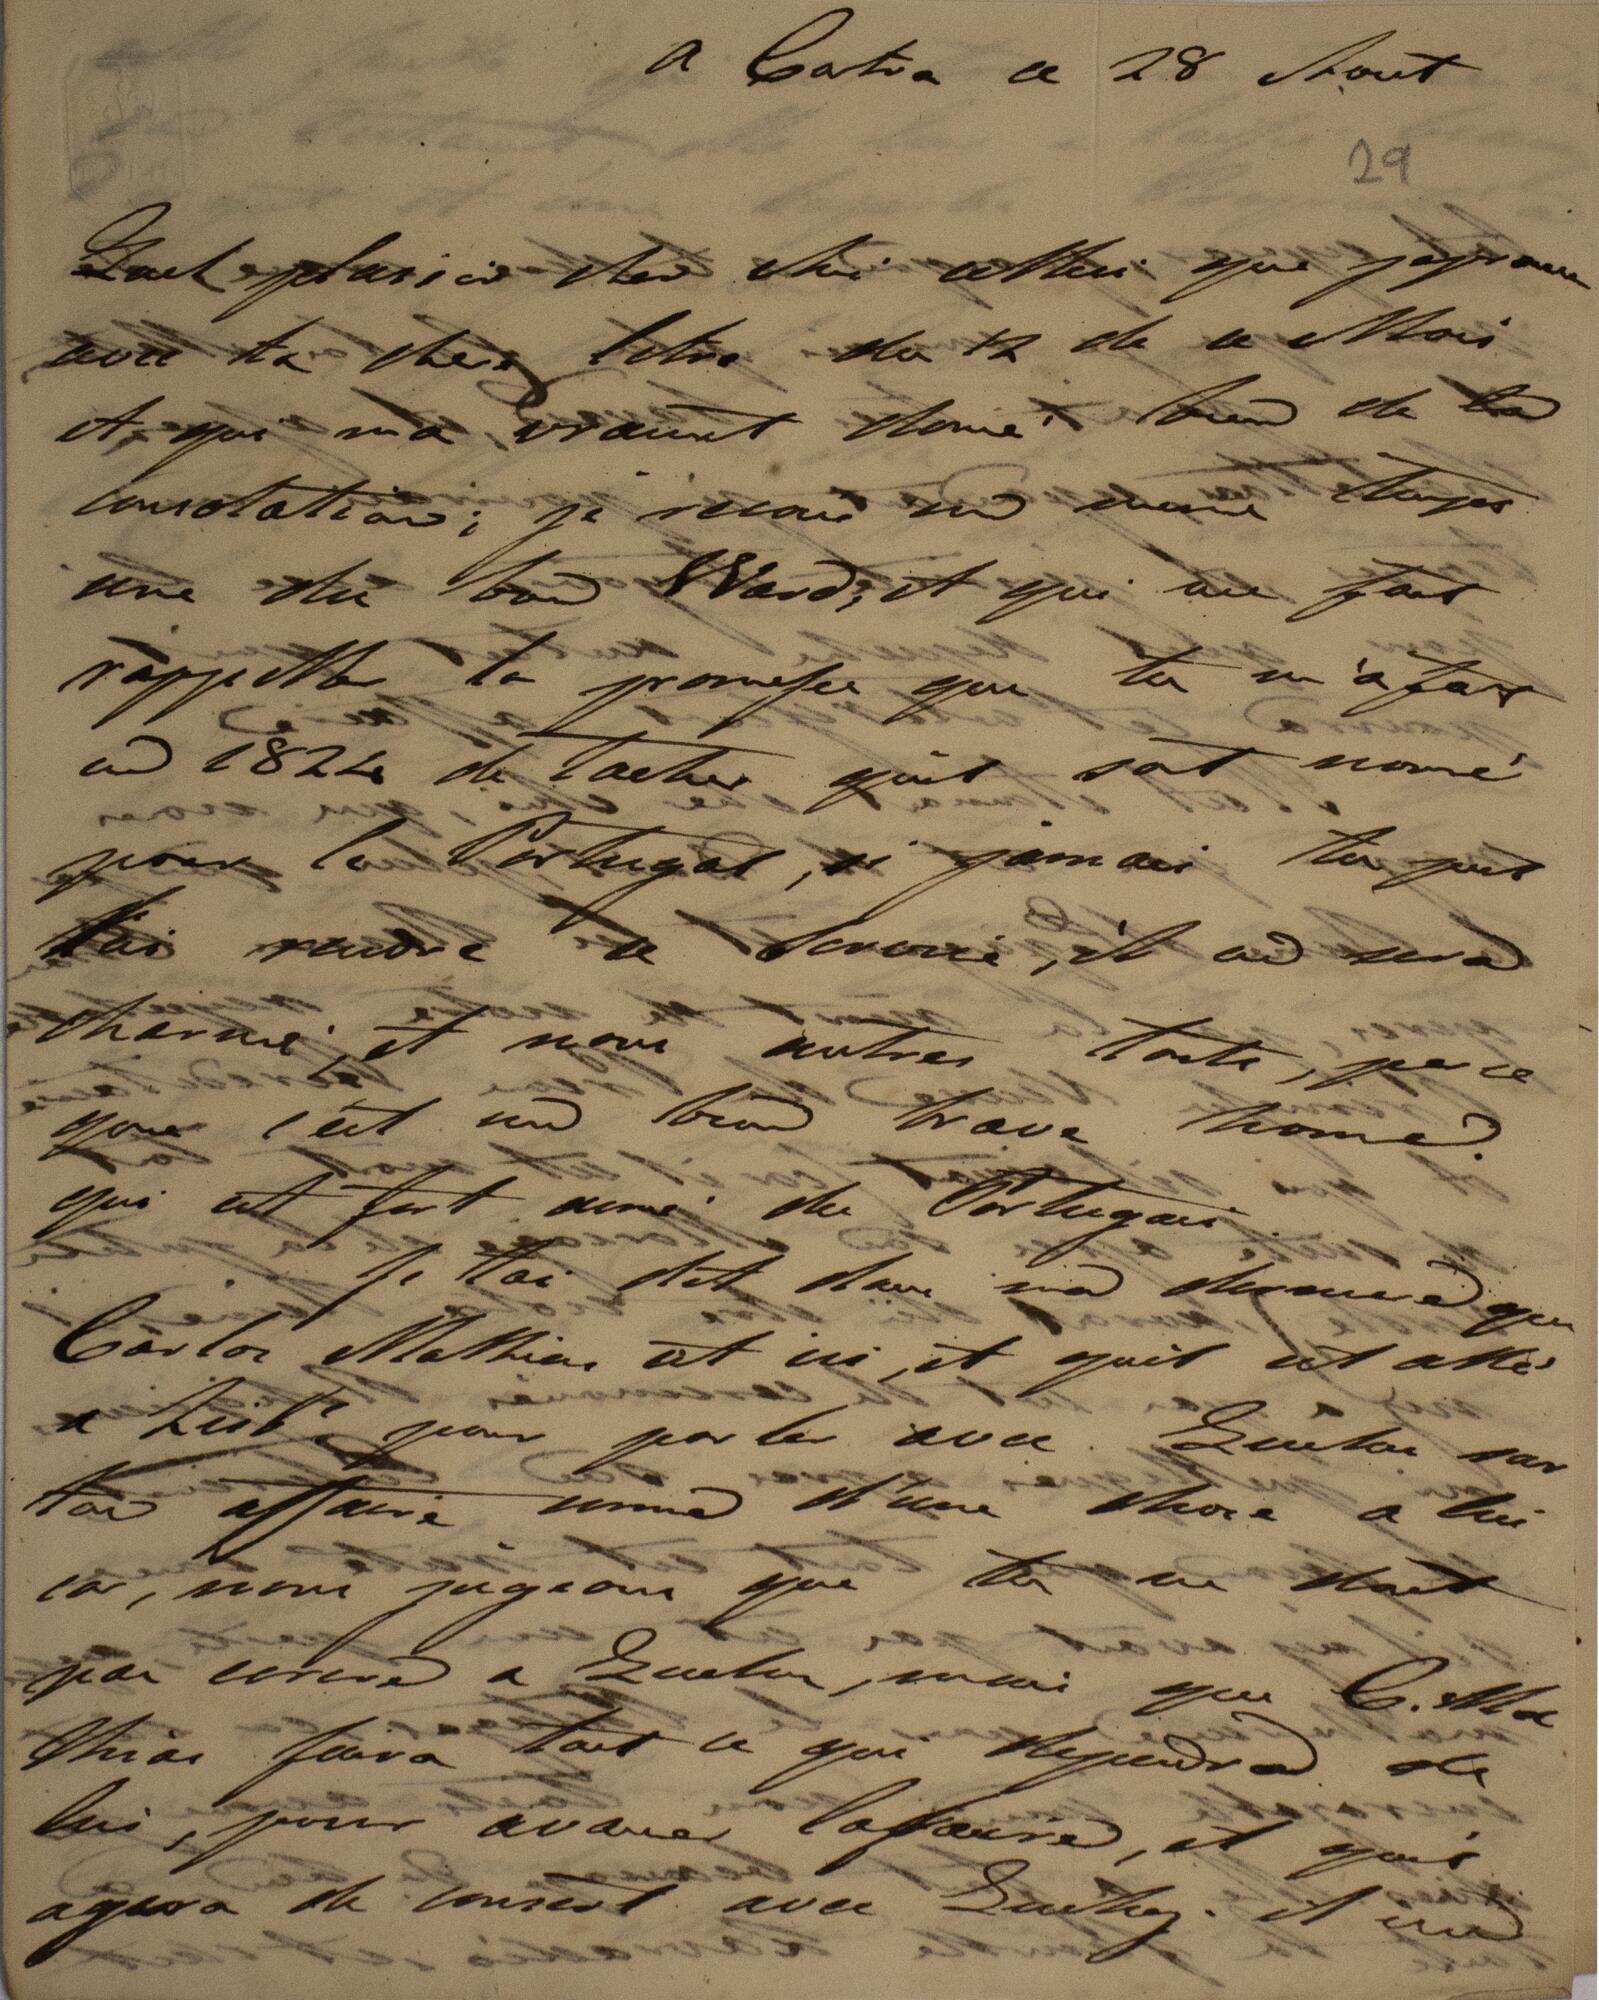 a Cintra ce 28 Aout
29
Quel plaisir cher Ami celui que j'eprouve
avec ta chere letre du 12 de ce Mois
et, qui m'a vraiment doné bien de la
consolation; je recois en meme temps
une du bon Ward, et qui me fait
rappeller la promesse que tu m'a fait
en 1824 de tacher quil soit nomé
pour le Portugal, si jamais tu put
lui rendre ce service, il en sera
charmé, et nous autres touts, parce
que c'est un bien brave home.
qui est fort aimé du Portugais.
Je t'ai dit dans ma derniere que
Carlos Mathias est ici, et quil est allé
a Lisbe pour parler avec Quelus sur
ton affaire come d'une chose a lui
car, nous jugeons que tu ne doit
pas ecrire a Quelus, mais que C. Ma
thias faira tout ce qui dependra de
lui, pour avancer l'affaire, et quil
agira de concert avec il